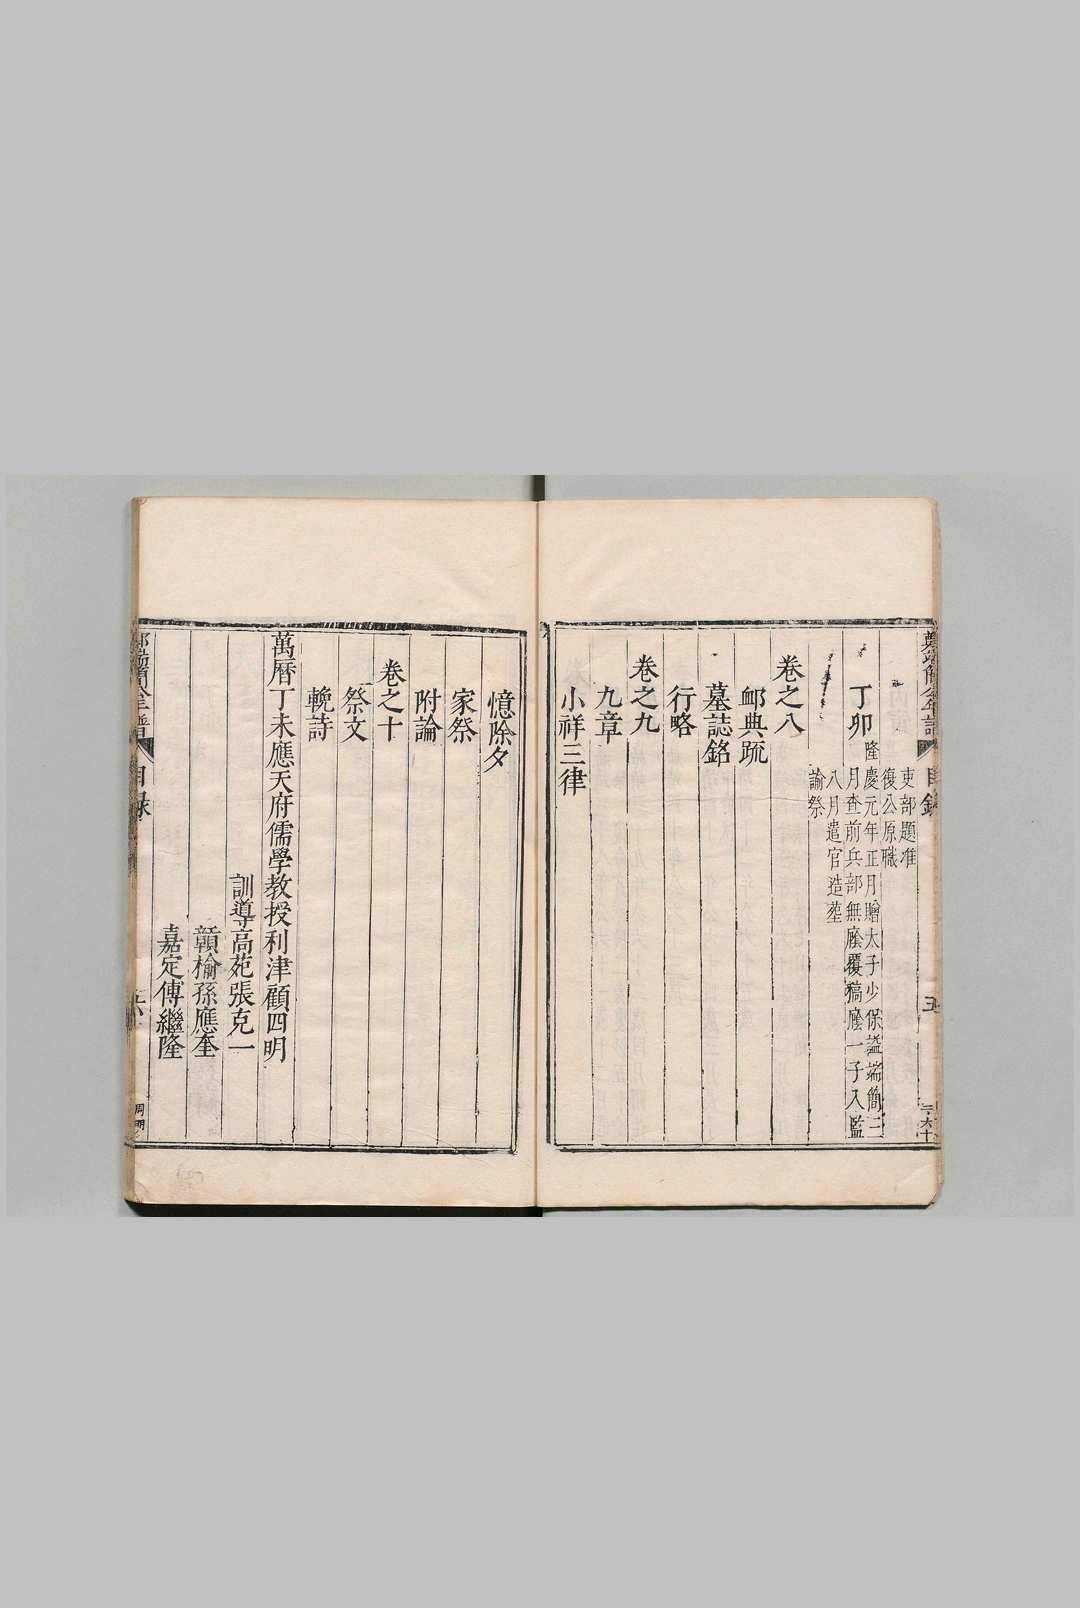 鄭端簡公年譜
目錄
五
吏部題准
復公原職
丁卯
隆慶元年正月贈太子少保諡端簡三
月查前兵部無廕覆稿廕一子入監
八月遣官造塟
諭祭
卷之八
卹典疏
墓誌銘
行略
卷之九
九章
小祥三律
憶除夕
家祭
附論
卷之十
祭文
輓詩
萬曆丁未應天府儒學教授利津顧四明
訓導高苑張克一
贛榆孫應奎
嘉定傅繼隆
鄭端簡公年譜
目錄